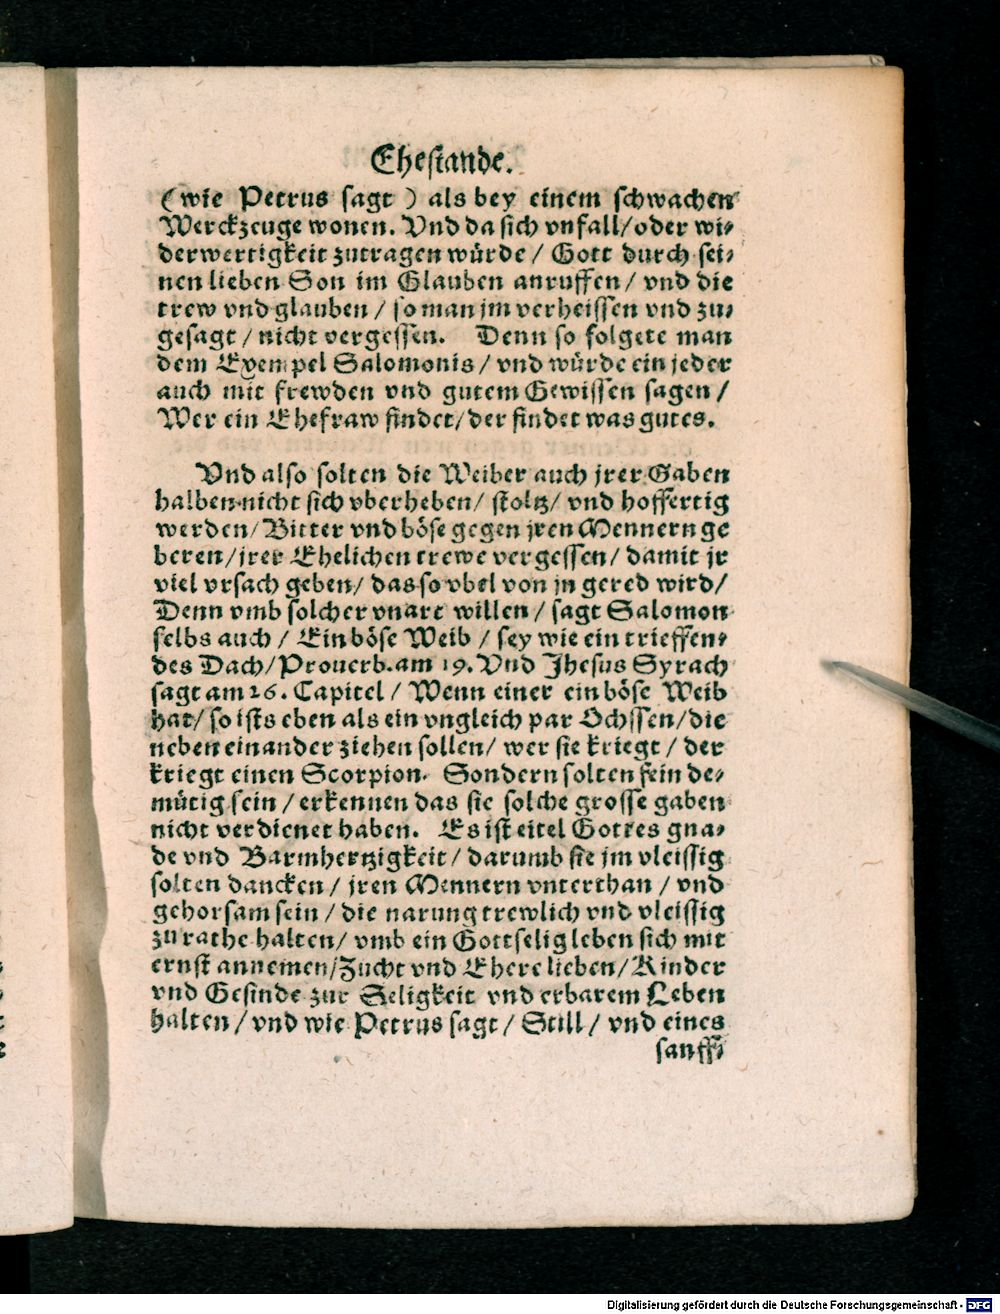 Ehestande.
(wie Petrus sagt ) als bey einem schwachen
Werckzeuge wonen. Vnd da sich vnfall/ oder wi-
derwertigkeit zutragen würde / Gott durch sei-
nen lieben Son im Glauben anruffen / vnd die
trew vnd glauben / so man jm verheissen vnd zu-
gesagt / nicht vergessen. Denn so folgete man
dem Exempel Salomonis / vnd würde ein jeder
auch mit frewden vnd gutem Gewissen sagen /
Wer ein Ehefraw findet/ der findet was gutes.
Vnd also solten die Weiber auch jrer Gaben
halben nicht sich vberheben/ stoltz/ vnd hoffertig
werden/ Bitter vnd böse gegen jren Mennern ge
beren/ jrer Ehelichen trewe vergessen/ damit jr
viel vrsach geben/ das so vbel von jn gered wird/
Denn vmb solcher vnart willen / sagt Salomon
selbs auch / Ein böse Weib / sey wie ein trieffen-
des Dach/ Prouerb. am 19. Vnd Jhesus Syrach
sagt am 26. Capitel / Wenn einer ein böse Weib
hat/ so ists eben als ein vngleich par Ochssen/ die
neben einander ziehen sollen/ wer sie kriegt / der
kriegt einen Scorpion. Sondern solten fein de-
mütig sein / erkennen das sie solche grosse gaben
nicht verdienet haben. Es ist eitel Gottes gna-
de vnd Barmhertzigkeit/ darumb sie jm vleissig
solten dancken / jren Mennern vnterthan / vnd
gehorsam sein / die narung trewlich vnd vleissig
zu rathe halten/ vmb ein Gottselig leben sich mit
ernst annemen/ Zucht vnd Ehere lieben/ Kinder
vnd Gesinde zur Seligkeit vnd erbarem Leben
halten / vnd wie Petrus sagt / Still / vnd eines
sanff-
Digitalisierung gefördert durch die Deutsche Forschungsgemeinschaft - DFG